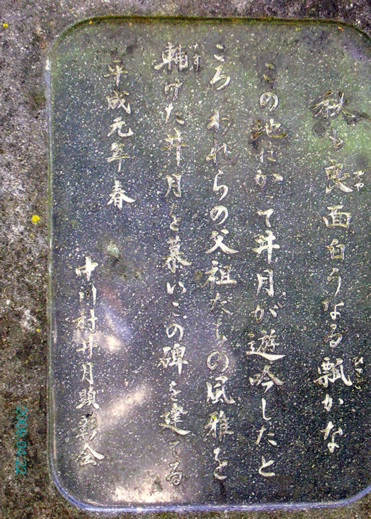 秋も良面白うなる瓢かな
この地はかて井月が遊吟したと
ころわれらの父祖たちの風雅を
輔けた井月を慕いこの碑を建てる
平成元年春
中川村井月顕彰会